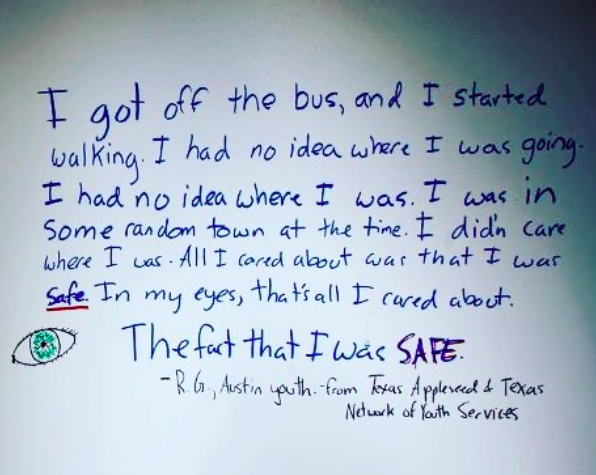 I got off the bus, and I started
walking. I had no idea where I was going.
I had no idea where I was. I was in
some random town at the time. I didn care
where I was. All I cared about was that I was
safe. In my eyes, that's all I cared about.
The fact that I was SAFE.
- R.G., Austin youth.-from Texas Appleseed & Texas
Network of Youth Services